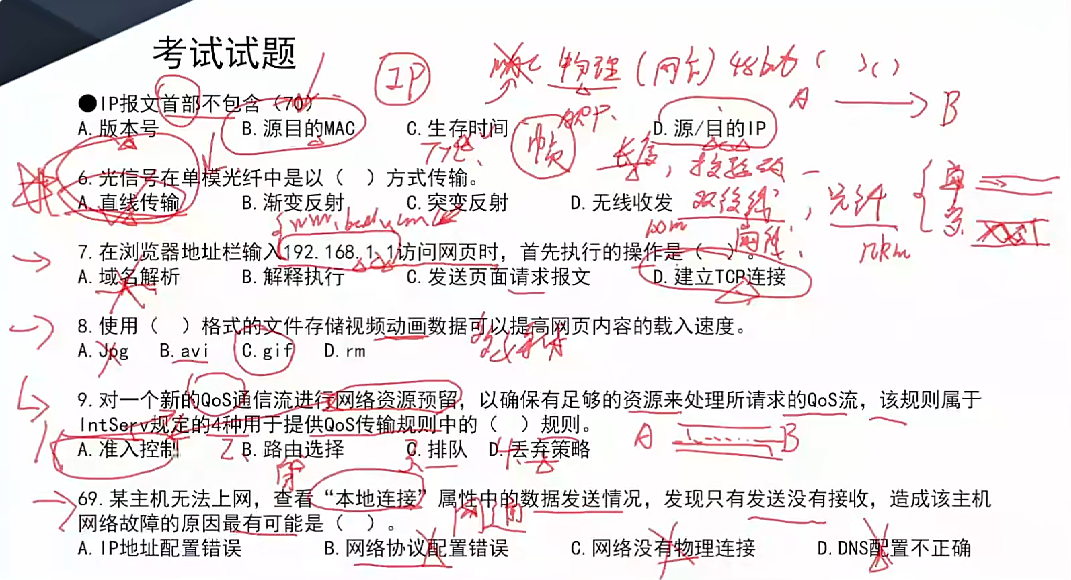 考试试题
IP
物理(网卡) 48bit ( )( )
A
B
●IP报文首部不包含（70）
ARP.
A.版本号 B.源目的MAC C.生存时间 D.源/目的IP
TTL.
帧
长度，校验码
6.光信号在单模光纤中是以（ ）方式传输。
单
A.直线传输 B.渐变反射 C.突变反射 D.无线收发
双绞线，光纤
多
100m
10km
7.在浏览器地址栏输入192.168.1.1访问网页时，首先执行的操作是（ ）。
A.域名解析 B.解释执行 C.发送页面请求报文 D.建立TCP连接
8.使用（ ）格式的文件存储视频动画数据可以提高网页内容的载入速度。
A.Jpg B.avi C.gif D.rm
9.对一个新的QoS通信流进行网络资源预留，以确保有足够的资源来处理所请求的QoS流，该规则属于
IntServ规定的4种用于提供QoS传输规则中的（ ）规则。
A
B
A.准入控制 B.路由选择 C.排队 D.丢弃策略
69.某主机无法上网，查看“本地连接”属性中的数据发送情况，发现只有发送没有接收，造成该主机
网络故障的原因最有可能是（ ）。
A.IP地址配置错误 B.网络协议配置错误 C.网络没有物理连接 D.DNS配置不正确